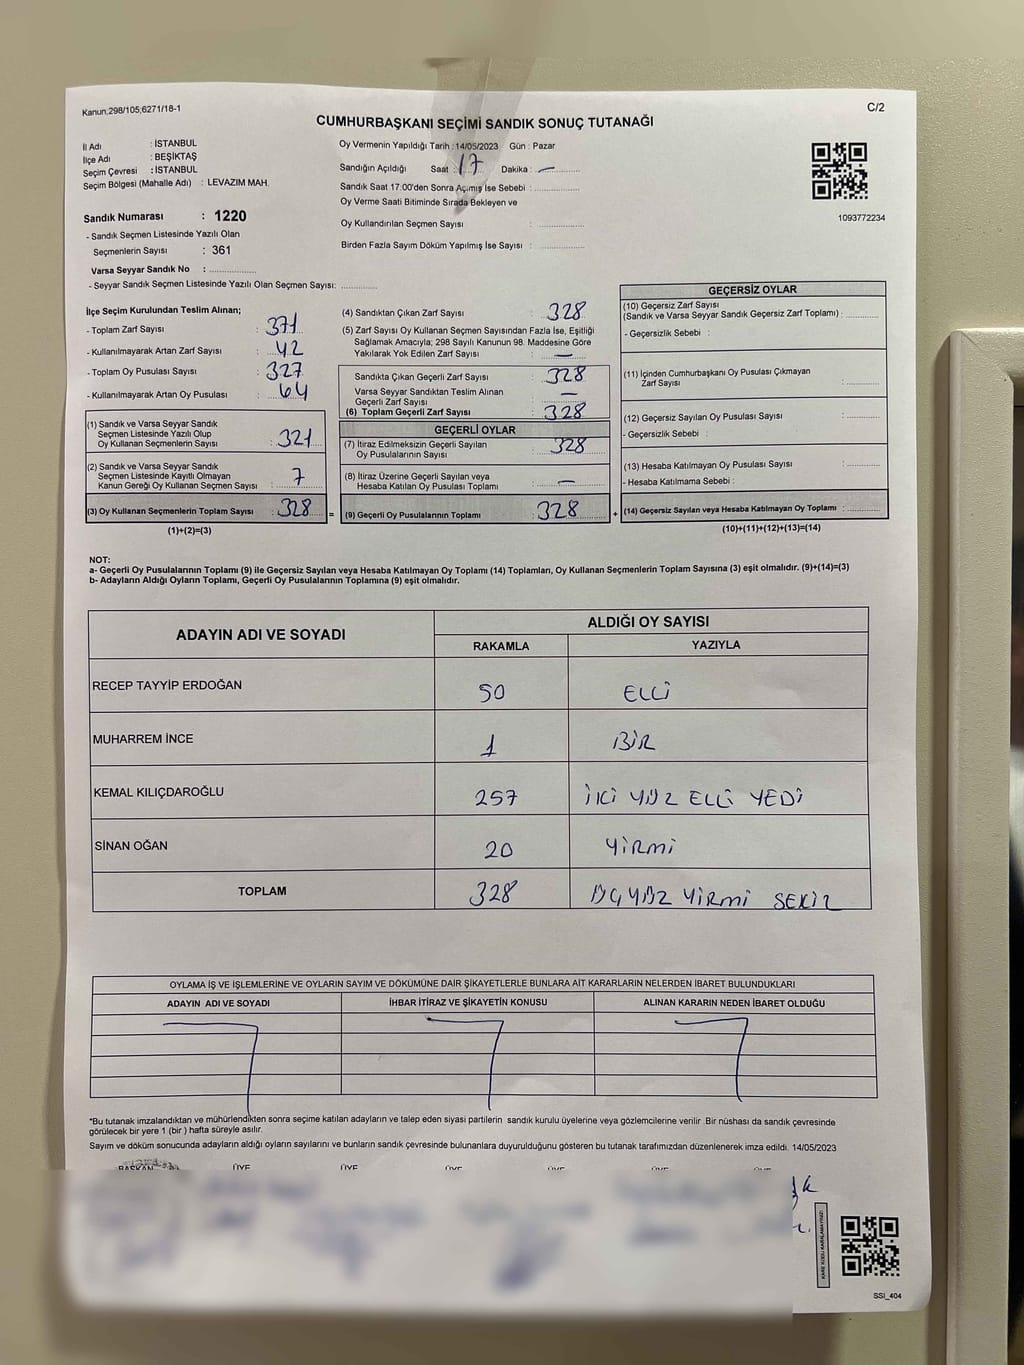 Kanun;298/105;6271/18-1
C/2
CUMHURBAŞKANI SEÇİMİ SANDIK SONUÇ TUTANAĞI
İl Adı : İSTANBUL
İlçe Adı : BEŞİKTAŞ
Seçim Çevresi : İSTANBUL
Seçim Bölgesi (Mahalle Adı) : LEVAZIM MAH.
Oy Vermenin Yapıldığı Tarih : 14/05/2023 Gün : Pazar
Sandığın Açıldığı Saat : 17 Dakika : —
Sandık Saat 17.00'den Sonra Açımış İse Sebebi :
Oy Verme Saati Bitiminde Sırada Bekleyen ve
Oy Kullandırılan Seçmen Sayısı :
Birden Fazla Sayım Döküm Yapılmış İse Sayısı :
1093772234
Sandık Numarası : 1220
- Sandık Seçmen Listesinde Yazılı Olan
Seçmenlerin Sayısı : 361
Varsa Seyyar Sandık No :
- Seyyar Sandık Seçmen Listesinde Yazılı Olan Seçmen Sayısı:
İlçe Seçim Kurulundan Teslim Alınan;
- Toplam Zarf Sayısı : 371
- Kullanılmayarak Artan Zarf Sayısı : 42
- Toplam Oy Pusulası Sayısı : 327
- Kullanılmayarak Artan Oy Pusulası : 64
(1) Sandık ve Varsa Seyyar Sandık
Seçmen Listesinde Yazılı Olup
Oy Kullanan Seçmenlerin Sayısı : 321
(2) Sandık ve Varsa Seyyar Sandık
Seçmen Listesinde Kayıtlı Olmayan
Kanun Gereği Oy Kullanan Seçmen Sayısı : 7
(3) Oy Kullanan Seçmenlerin Toplam Sayısı : 328 =
(1)+(2)=(3)
(4) Sandıktan Çıkan Zarf Sayısı : 328
(5) Zarf Sayısı Oy Kullanan Seçmen Sayısından Fazla İse, Eşitliği
Sağlamak Amacıyla; 298 Sayılı Kanunun 98. Maddesine Göre
Yakılarak Yok Edilen Zarf Sayısı : —
Sandıkta Çıkan Geçerli Zarf Sayısı : 328
Varsa Seyyar Sandıktan Teslim Alınan
Geçerli Zarf Sayısı : —
(6) Toplam Geçerli Zarf Sayısı : 328
GEÇERLİ OYLAR
(7) İtiraz Edilmeksizin Geçerli Sayılan
Oy Pusulalarının Sayısı : 328
(8) İtiraz Üzerine Geçerli Sayılan veya
Hesaba Katılan Oy Pusulası Toplamı : —
(9) Geçerli Oy Pusulalarının Toplamı : 328 +
GEÇERSİZ OYLAR
(10) Geçersiz Zarf Sayısı
(Sandık ve Varsa Seyyar Sandık Geçersiz Zarf Toplamı) :
- Geçersizlik Sebebi :
(11) İçinden Cumhurbaşkanı Oy Pusulası Çıkmayan
Zarf Sayısı :
(12) Geçersiz Sayılan Oy Pusulası Sayısı :
- Geçersizlik Sebebi :
(13) Hesaba Katılmayan Oy Pusulası Sayısı :
- Hesaba Katılmama Sebebi :
(14) Geçersiz Sayılan veya Hesaba Katılmayan Oy Toplamı :
(10)+(11)+(12)+(13)=(14)
NOT:
a- Geçerli Oy Pusulalarının Toplamı (9) ile Geçersiz Sayılan veya Hesaba Katılmayan Oy Toplamı (14) Toplamları, Oy Kullanan Seçmenlerin Toplam Sayısına (3) eşit olmalıdır. (9)+(14)=(3)
b- Adayların Aldığı Oyların Toplamı, Geçerli Oy Pusulalarının Toplamına (9) eşit olmalıdır.
ADAYIN ADI VE SOYADI
ALDIĞI OY SAYISI
RAKAMLA YAZIYLA
RECEP TAYYİP ERDOĞAN 50 ELLİ
MUHARREM İNCE 1 BİR
KEMAL KILIÇDAROĞLU 257 İKİ YÜZ ELLİ YEDİ
SİNAN OĞAN 20 YİRMİ
TOPLAM 328 ÜÇYÜZ YİRMİ SEKİZ
OYLAMA İŞ VE İŞLEMLERİNE VE OYLARIN SAYIM VE DÖKÜMÜNE DAİR ŞİKAYETLERLE BUNLARA AİT KARARLARIN NELERDEN İBARET BULUNDUKLARI
ADAYIN ADI VE SOYADI İHBAR İTİRAZ VE ŞİKAYETİN KONUSU ALINAN KARARIN NEDEN İBARET OLDUĞU
*Bu tutanak imzalandıktan ve mühürlendikten sonra seçime katılan adayların ve talep eden siyasi partilerin sandık kurulu üyelerine veya gözlemcilerine verilir. Bir nüshası da sandık çevresinde
görülecek bir yere 1 (bir) hafta süreyle asılır.
Sayım ve döküm sonucunda adayların aldığı oyların sayılarını ve bunların sandık çevresinde bulunanlara duyurulduğunu gösteren bu tutanak tarafımızdan düzenlenerek imza edildi. 14/05/2023
BAŞKAN ÜYE ÜYE ÜYE ÜYE ÜYE ÜYE
KARE KODU KARALAMAYINIZ!
SSI_404